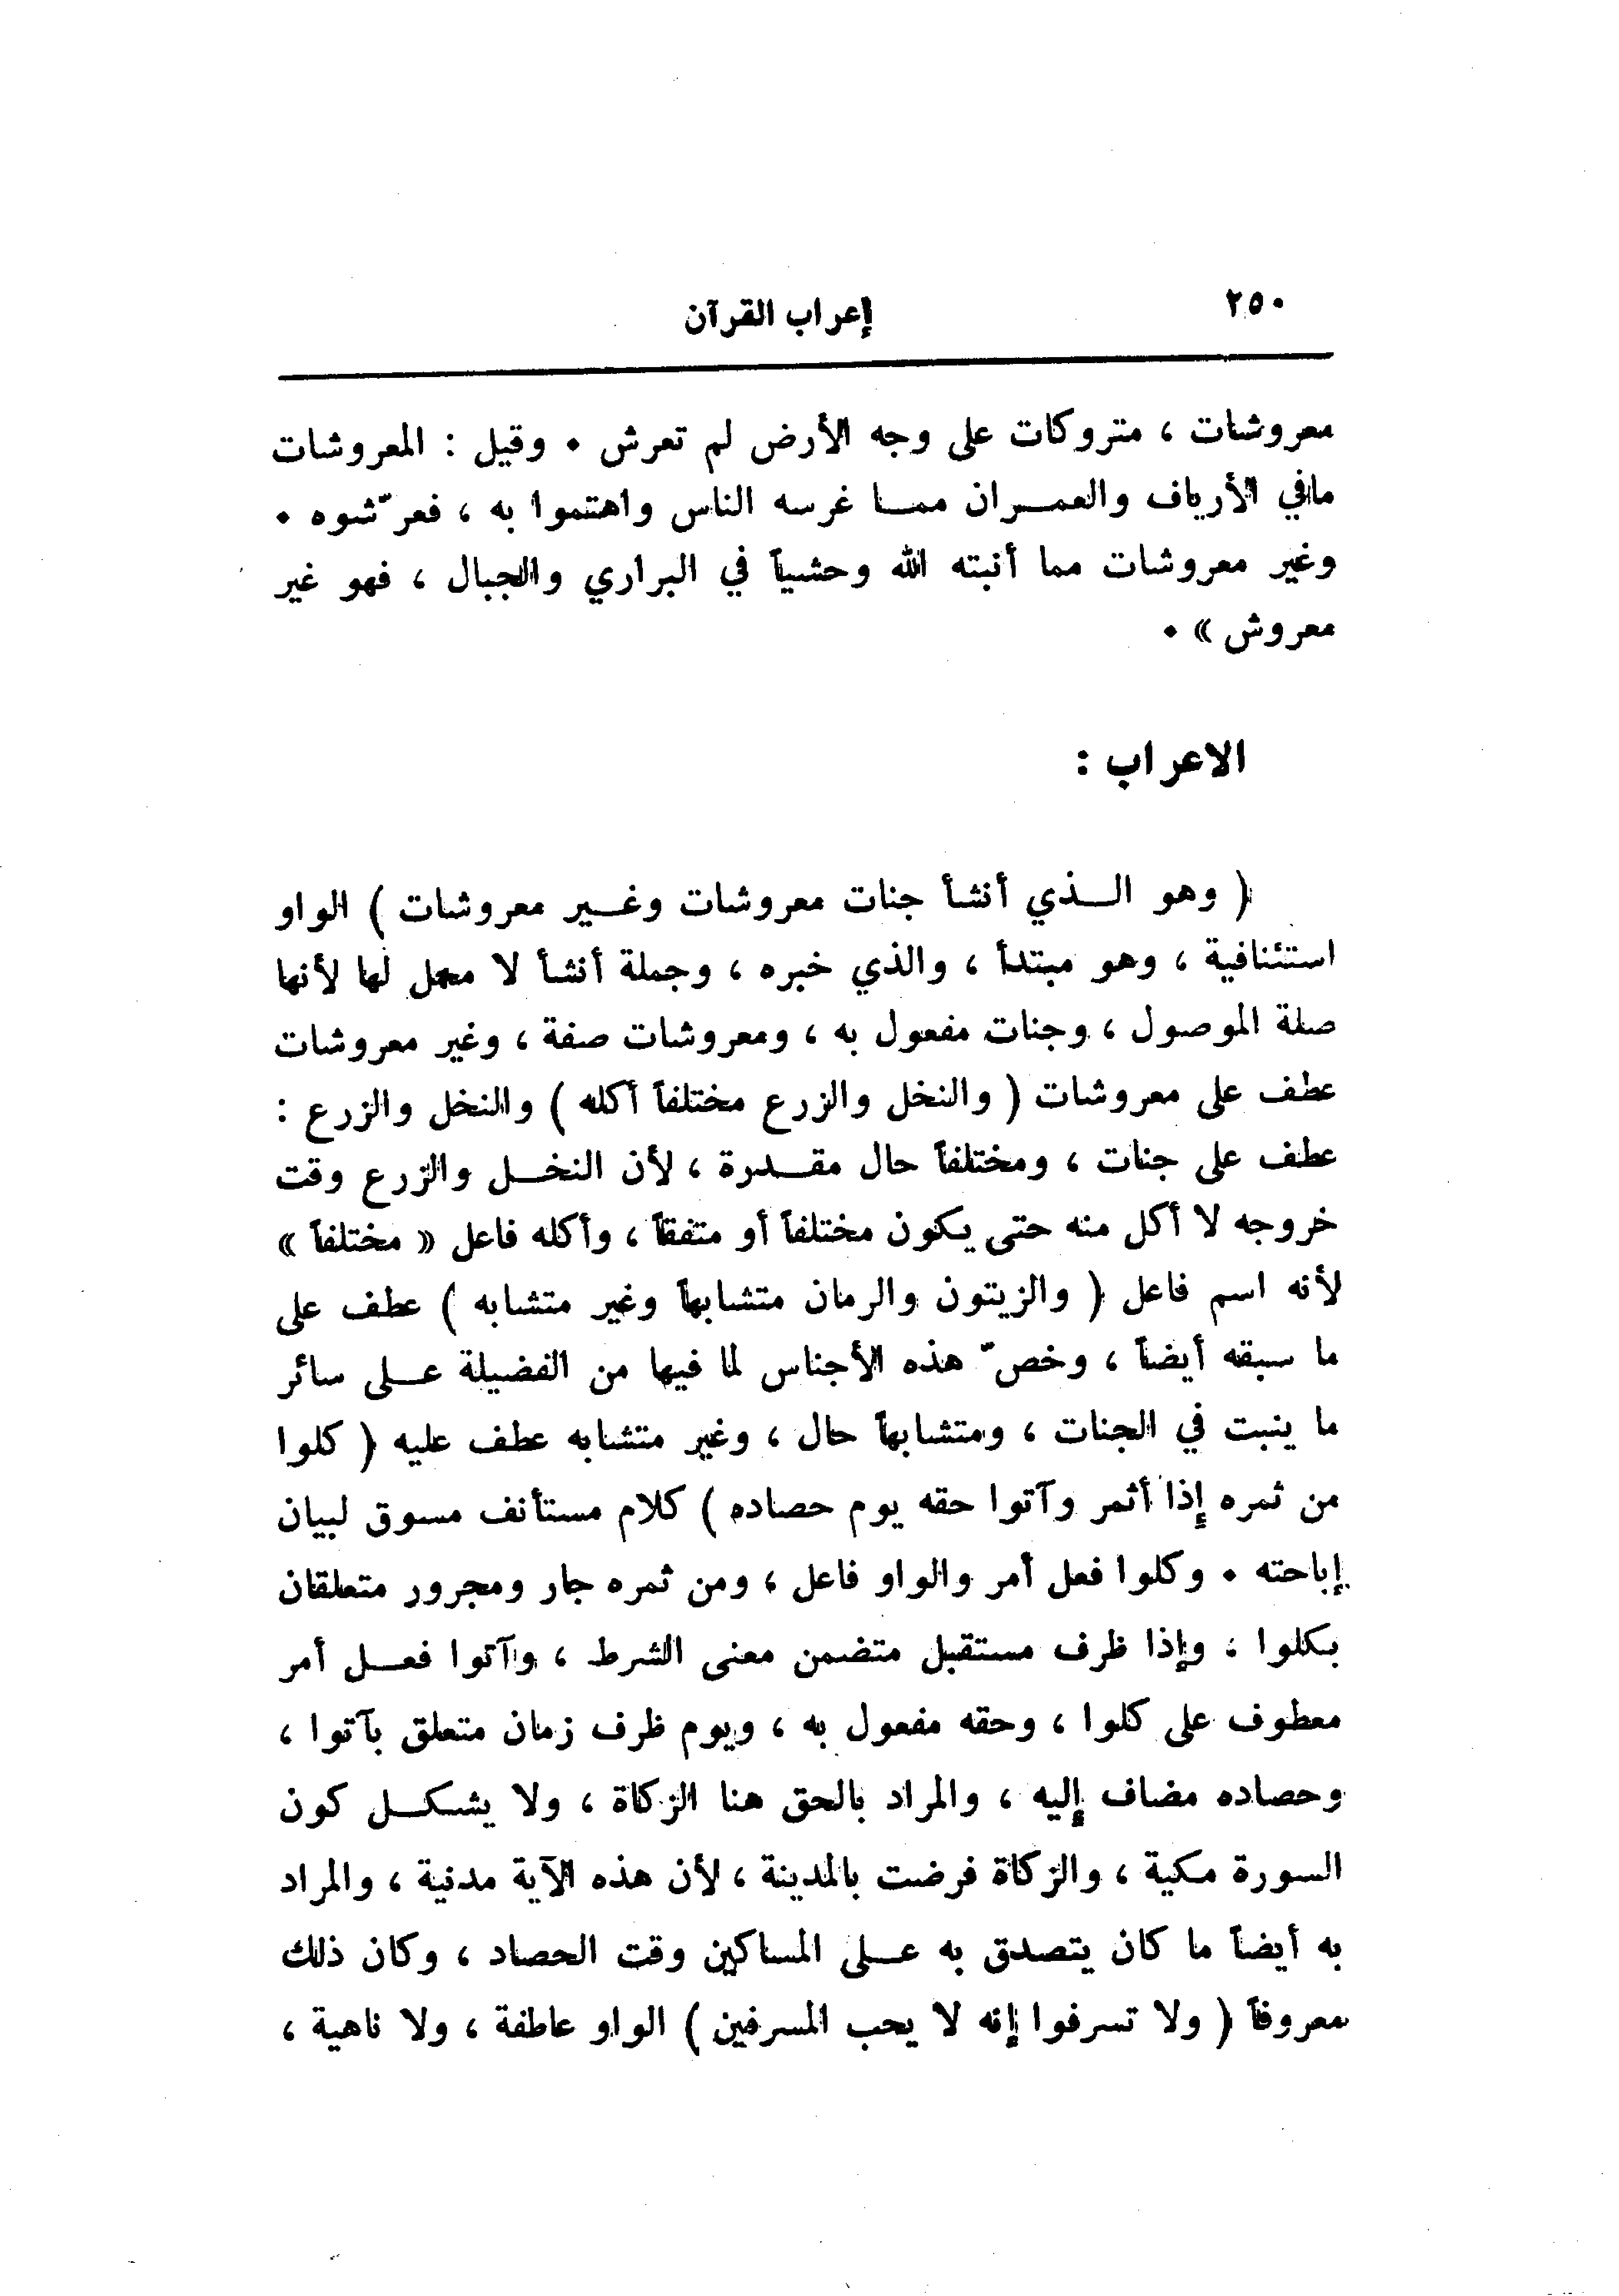 ٢٥٠
إعراب القرآن
معروشات ، متروكات على وجه الأرض لم تعرش . وقيل : المعروشات
مافي الأرياف والعمران مما غرسه الناس واهتموا به ، فعرّشوه .
وغير معروشات مما أنبته الله وحشياً في البراري والجبال ، فهو غير
معروش » .
الاعراب :
( وهو الذي أنشأ جنات معروشات وغير معروشات ) الواو
استئنافية ، وهو مبتدأ ، والذي خبره ، وجملة أنشأ لا محل لها لأنها
صلة الموصول ، وجنات مفعول به ، ومعروشات صفة ، وغير معروشات
عطف على معروشات ( والنخل والزرع مختلفاً أكله ) والنخل والزرع :
عطف على جنات ، ومختلفاً حال مقدرة ، لأن النخل والزرع وقت
خروجه لا أكل منه حتى يكون مختلفاً أو متفقاً ، وأكله فاعل « مختلفاً »
لأنه اسم فاعل ( والزيتون والرمان متشابهاً وغير متشابه ) عطف على
ما سبقه أيضاً ، وخصّ هذه الأجناس لما فيها من الفضيلة على سائر
ما ينبت في الجنات ، ومتشابهاً حال ، وغير متشابه عطف عليه ( كلوا
من ثمره إذا أثمر وآتوا حقه يوم حصاده ) كلام مستأنف مسوق لبيان
إباحته . وكلوا فعل أمر والواو فاعل ، ومن ثمره جار ومجرور متعلقان
بكلوا ، وإذا ظرف مستقبل متضمن معنى الشرط ، وآتوا فعل أمر
معطوف على كلوا ، وحقه مفعول به ، ويوم ظرف زمان متعلق بآتوا ،
وحصاده مضاف إليه ، والمراد بالحق هنا الزكاة ، ولا يشكل كون
السورة مكية ، والزكاة فرضت بالمدينة ، لأن هذه الآية مدنية ، والمراد
به أيضاً ما كان يتصدق به على المساكين وقت الحصاد ، وكان ذلك
معروفاً ( ولا تسرفوا إنه لا يحب المسرفين ) الواو عاطفة ، ولا ناهية ،